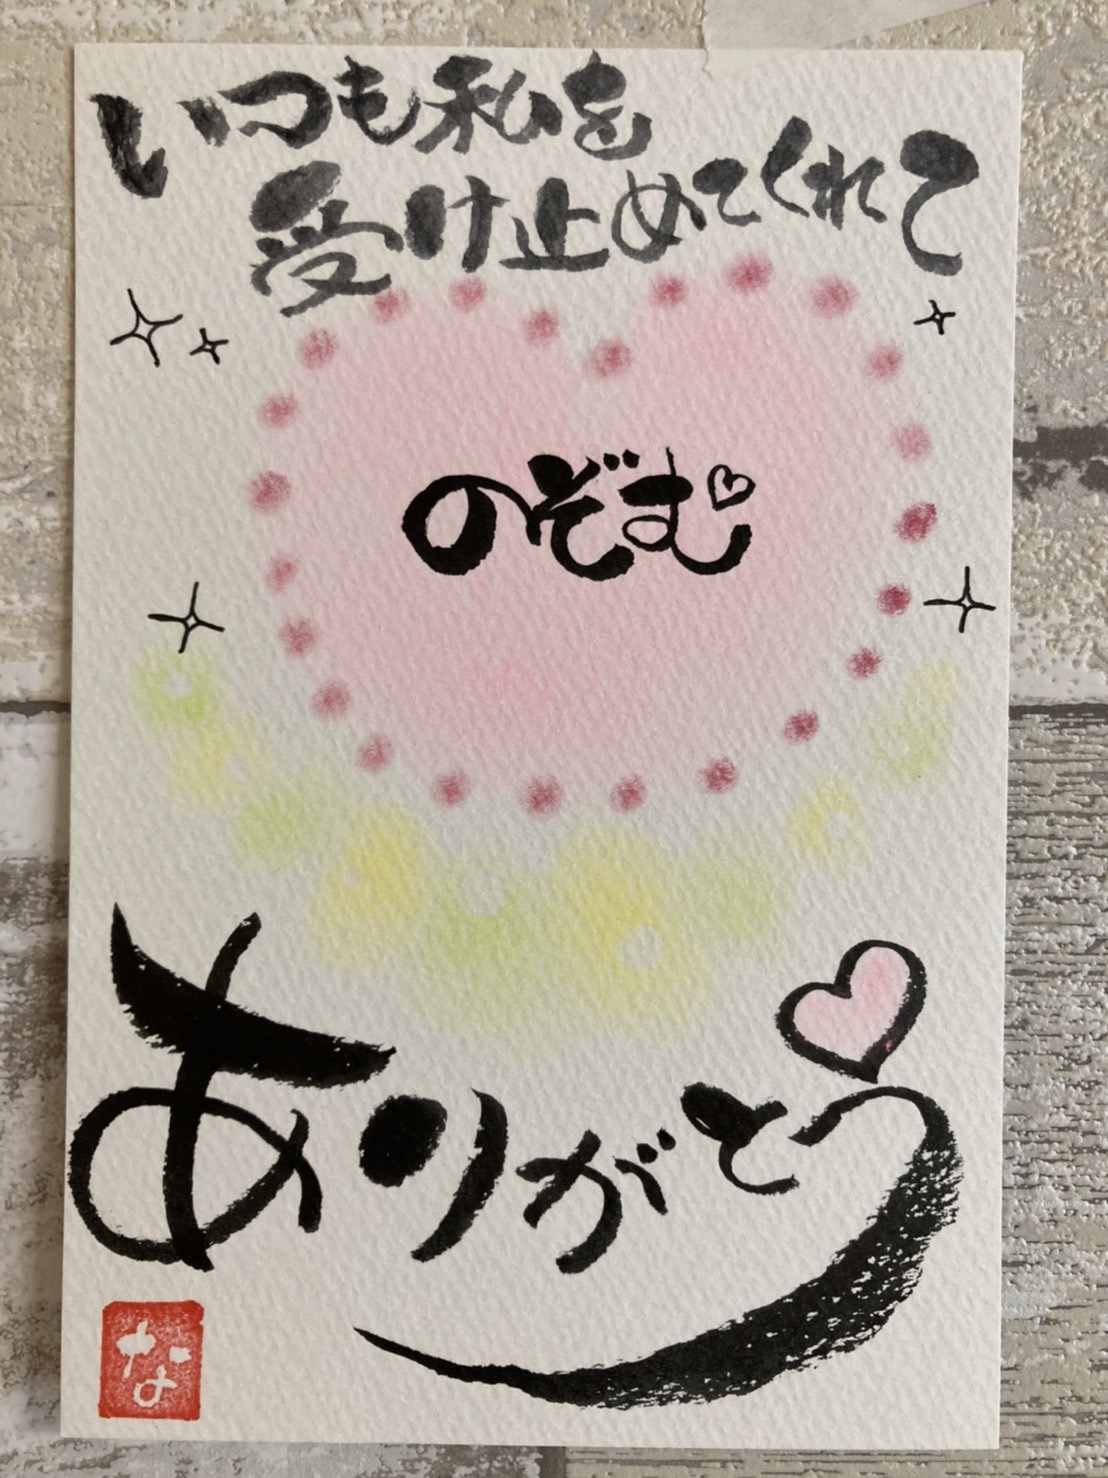 いつも私を
受け止めてくれて
のぞむ
ありがとう
な